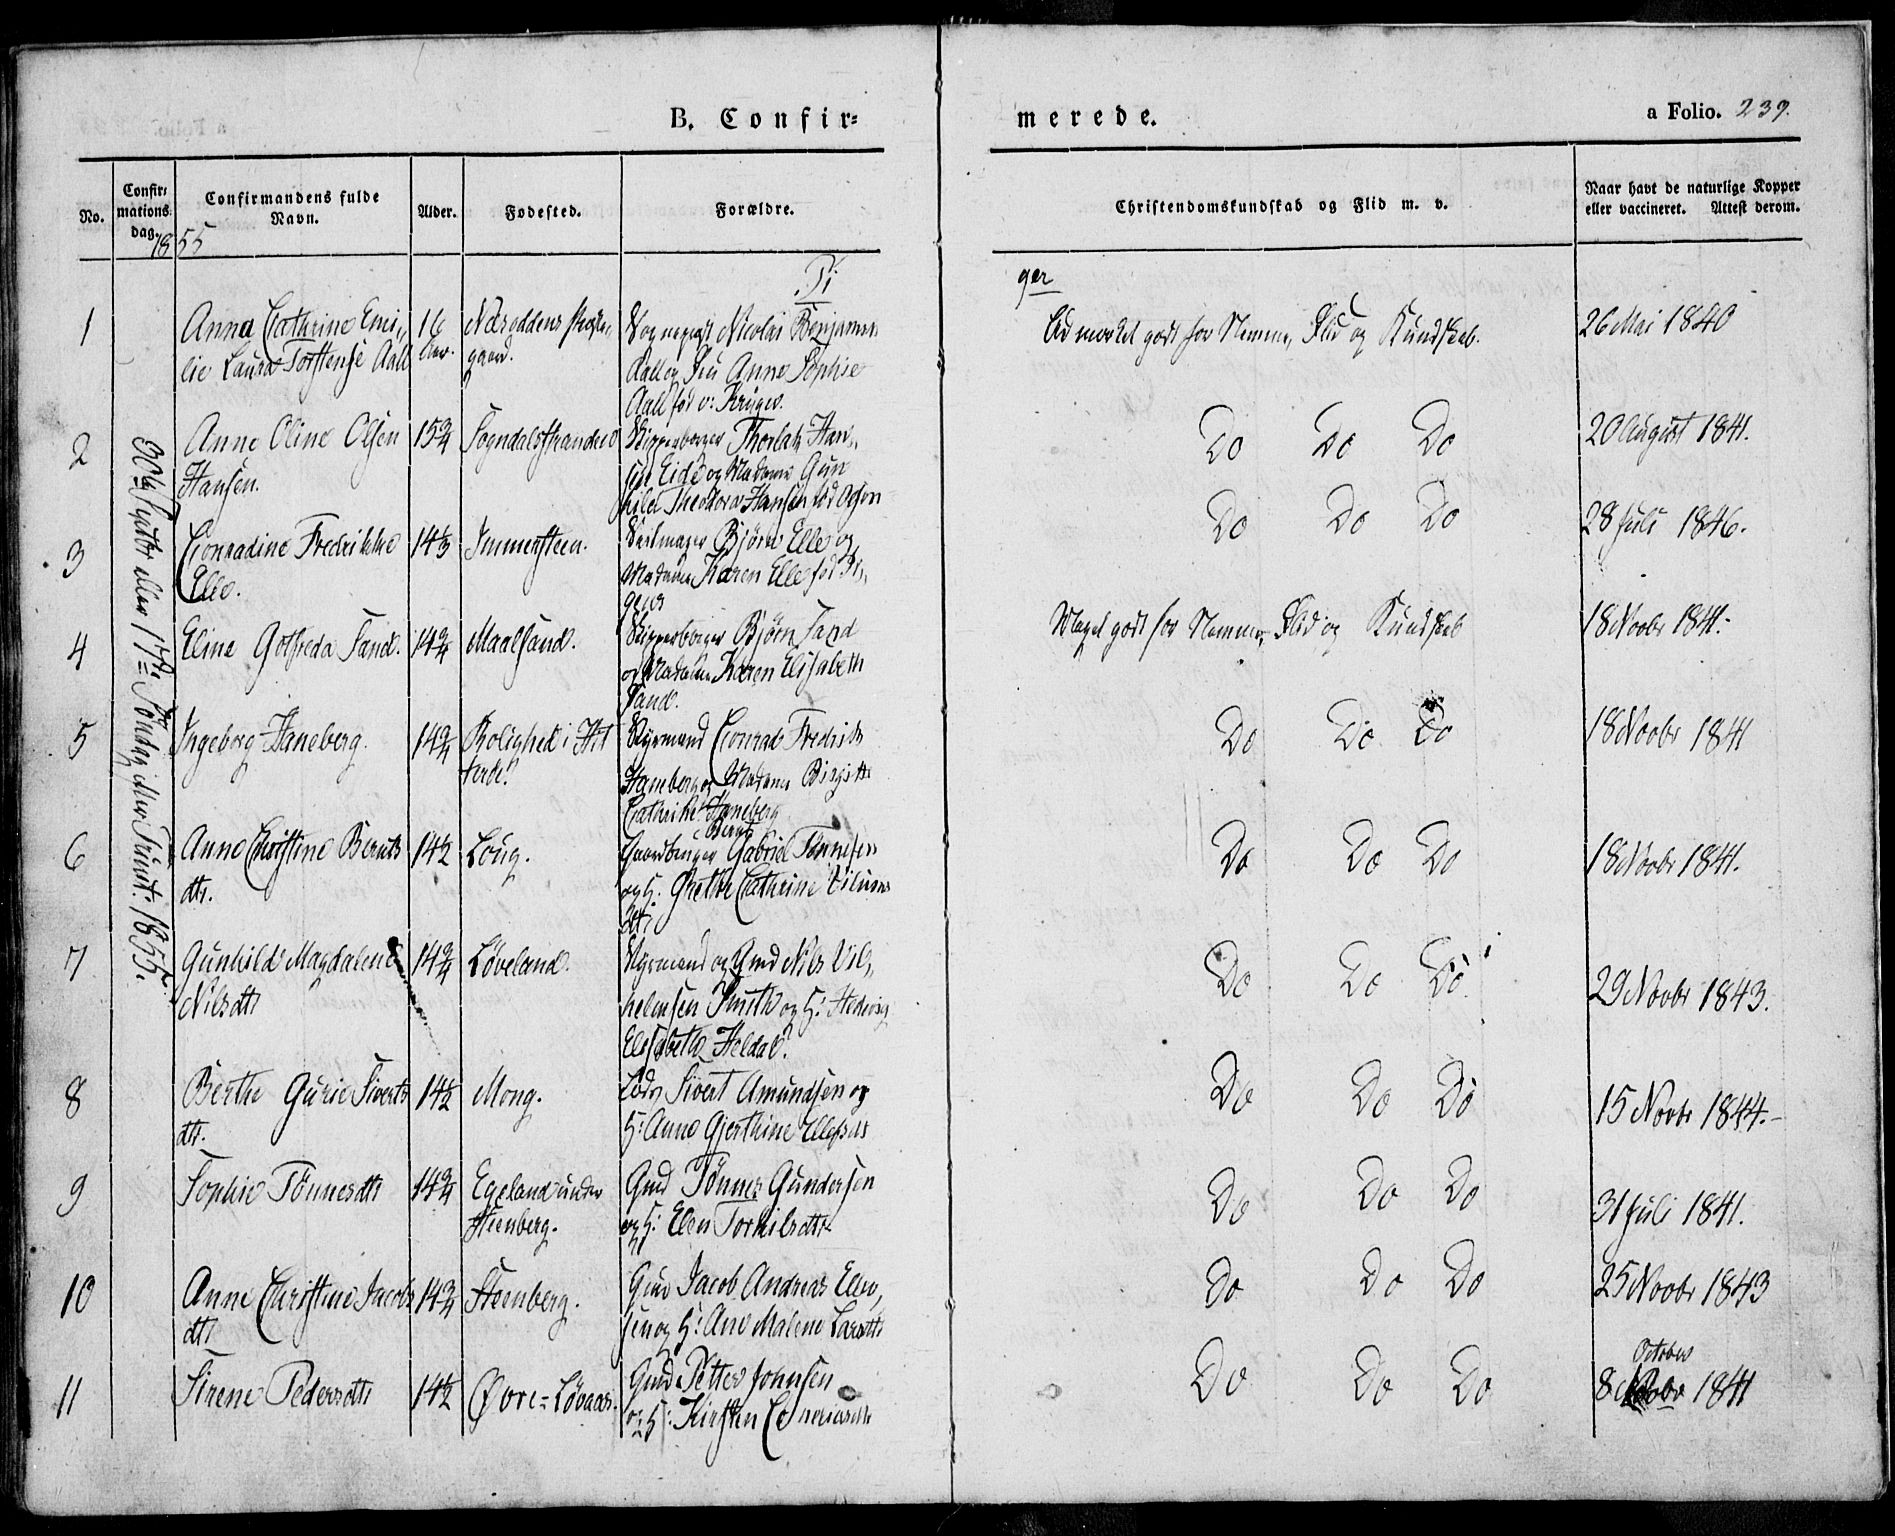 B. Confir=
merede.
a Folio. 239.
No.
Confir:
mations:
dag.
Confirmandens fulde
Navn.
Alder.
Fødested.
Forældre.
Christendomskundskab og Flid m. v.
Naar havt de naturlige Kopper
eller vaccineret. Attest derom.
1855
30te Septbr eller 17de Søndag efter Trinit: 1855.
Pi
ger
1
Anna Cathrine Emi,,
lie Laura Torstense Aall
16
Aar.
Næsoddens Præste
gaard.
Sognepræst Nicolai Benjamin
Aall og Fru Anne Sophie
Aall fød v: Krüger.
Udmærket godt for Nemme, Flid og Kundskab.
26 Mai 1840
2
Anne Oline Olsen
Hansen.
15 3/4
Sogndalsstranden
Skipperborger Thorlak Han,,
sen Eide og Madame Gun
hild Theodora Hansen fød Olsen
Do Do Do
20 August 1841.
3
Conradine Fredrikke
Elle.
14 1/3
Immersteen.
Seilmager Bjørn Elle og
Madame Karen Elle fød
Do Do Do
28 Juli 1846.
4
Eline Gotfreda Sand.
14 3/4
Maalsand.
Skipperborger Bjørn Sand
og Madame Karen Elisabeth
Sand.
Meget godt for Nemme, Flid og Kundskab
18 Novbr 1841.-
5
Ingeborg Haneberg.
14 3/4
Rolighed i Hit
terde.
Styrmand Conrad Fredrik
Haneberg og Madame Birgitte
Cathrine Haneberg
Do Do Do
18 Novbr 1841
6
Anne Christine Bernts
dtr.
14 1/2
Loug.
Gaardbruger Bernt Gabriel Tønnesen
og H: Grethe Cathrine Vilums
dtr
Do Do Do
18 Novbr 1841.
7
Gunhild Magdalene
Nilsdtr
14 3/4
Løveland.
Styrmand og Gmd Nils Vil,,
helmsen Smith og H: Hedevig
Elisabeth Heldal.
Do Do Do
29 Novbr 1843.
8
Berthe Gurie Siverts
dtr.
14 1/2
Mong.
Lods Sivert Amundsen og
H: Anne Gjerthine Ellefsdtr
Do Do Do
15 Novbr 1844.-
9
Sophie Tønnesdtr
14 3/4
Egeland under
Steenberg.
Gmd Tønnes Gundersen
og H: Elen Torkilsdtr
Do Do Do
31 Juli 1841.
10
Anne Christine Jacobs
dtr
14 3/4
Steenberg.
Gmd Jacob Andreas Elle,
sen og H: Ane Malene Larsdtr
Do Do Do
25 Novbr 1843
11
Sirene Pedersdtr
14 1/2
Øvre=Løvaas.
Gmd Petter Johnsen
og H: Kirsten Corneriusdtr
Do Do Do
October
8 1841